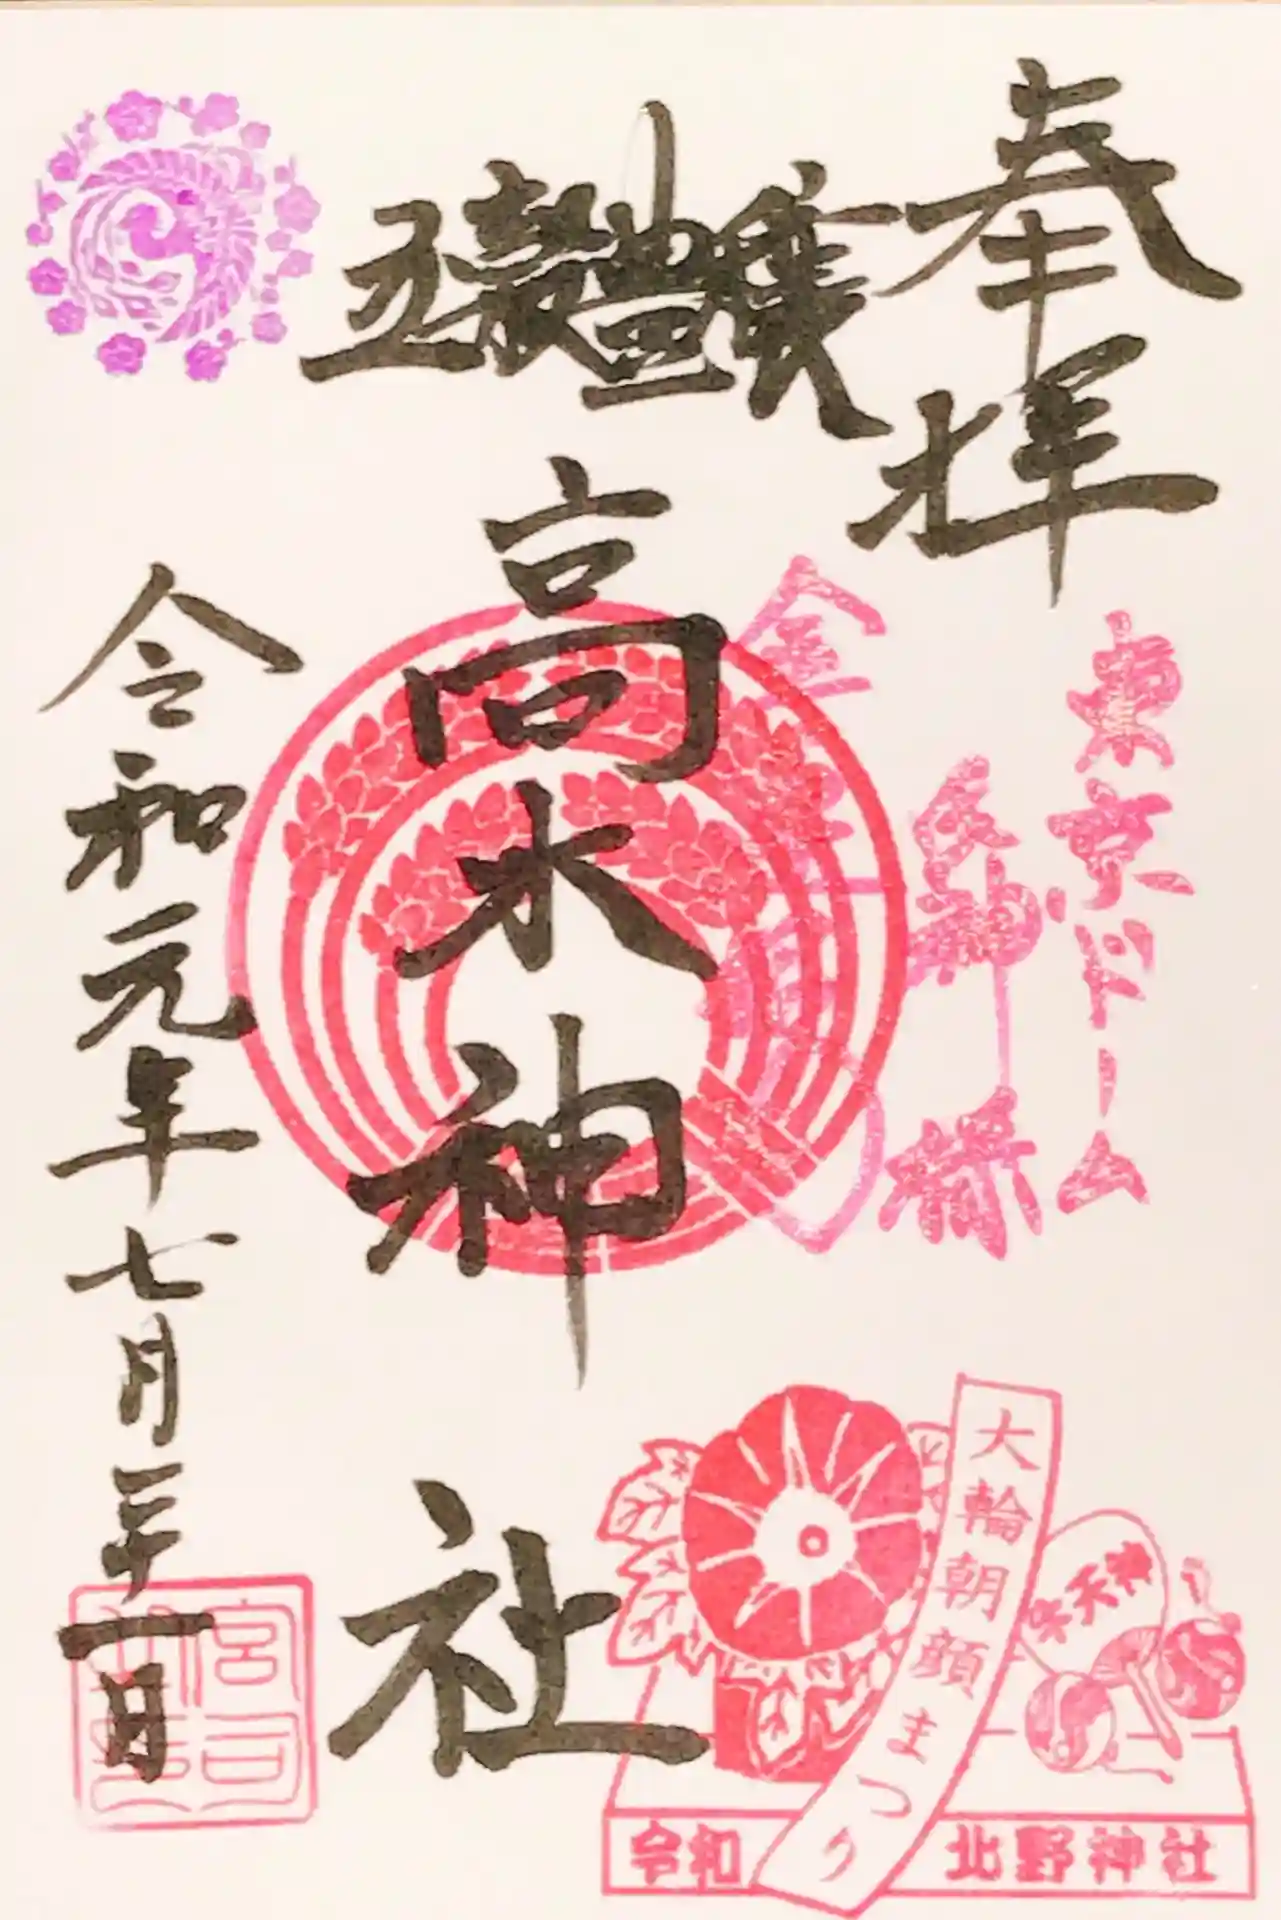 奉拝
五穀豊穣
高木神社
令和元年七月二十一日
東京ドーム
大輪朝顔まつり
天神
令和
北野神社
宮司